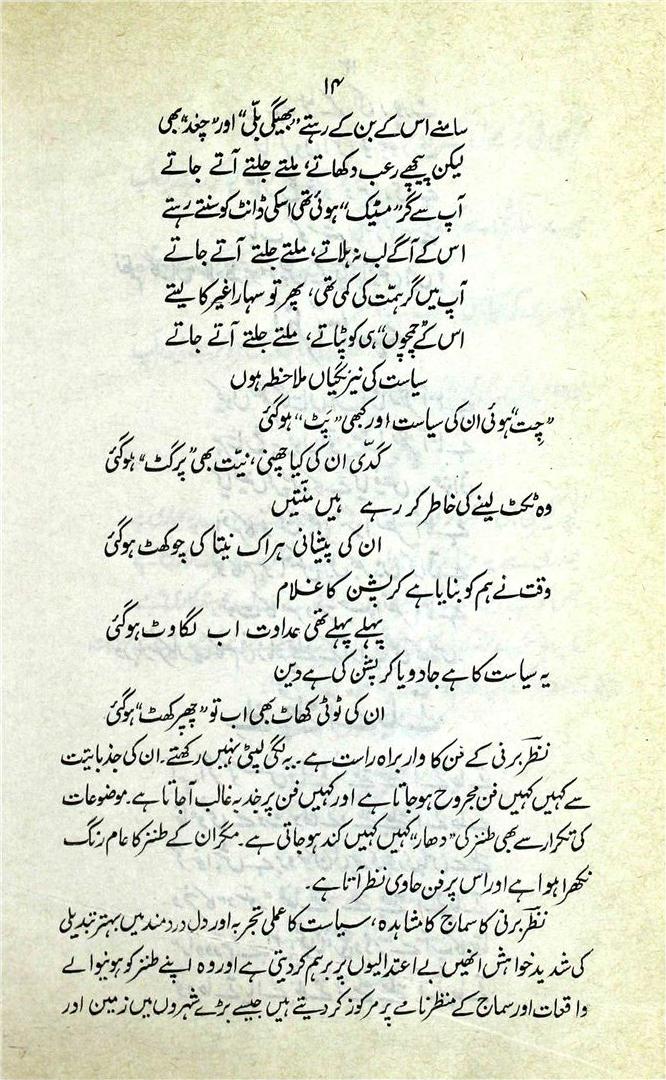 ۱۴
سامنے اس کے بن کے رہتے "بھیگی بلّی" اور "چغد" بھی
لیکن پیچھے رعب دکھاتے، ملتے جلتے آتے جاتے
آپ سے گر "مسٹیک" ہوئی تھی اسکی ڈانٹ کو سنتے رہتے
اس کے آگے لب نہ ہلاتے، ملتے جلتے آتے جاتے
آپ میں گر ہمّت کی کمی تھی، پھر تو سہارا غیر کا لیتے
اس کے "چمچوں" ہی کو پٹاتے، ملتے جلتے آتے جاتے
سیاست کی نیرنگیاں ملاحظہ ہوں
"چِت" ہوئی ان کی سیاست اور کبھی "پَٹ" ہوگئی
گدّی ان کی کیا چھِنی، نیّت بھی "پرگٹ" ہوگئی
وہ ٹکٹ لینے کی خاطر کر رہے ہیں منّتیں
ان کی پیشانی ہر اک نیتا کی چوکھٹ ہوگئی
وقت نے ہم کو بنایا ہے کرپشن کا غلام
پہلے پہلے تھی عداوت اب لگاوٹ ہوگئی
یہ سیاست کا ہے جادو یا کرپشن کی ہے دین
ان کی ٹوٹی کھاٹ بھی اب تو "چھپر کھٹ" ہوگئی
نظر برنی کے فن کا وار براہ راست ہے۔ یہ لگی لپٹی نہیں رکھتے۔ ان کی جذباتیت
سے کہیں کہیں فن مجروح ہوجاتا ہے اور کہیں فن پر جذبہ غالب آجاتا ہے۔ موضوعات
کی تکرار سے بھی طنز کی "دھار" کہیں کہیں کند ہوجاتی ہے۔ مگر ان کے طنز کا عام رنگ
نکھرا ہوا ہے اور اس پر فن حاوی نظر آتا ہے۔
نظر برنی کا سماج کا مشاہدہ، سیاست کا عملی تجربہ اور دل دردمند میں بہتر تبدیلی
کی شدید خواہش انھیں بے اعتدالیوں پر برہم کردیتی ہے اور وہ اپنے طنز کو ہونیوالے
واقعات اور سماج کے منظرنامے پر مرکوز کردیتے ہیں جیسے بڑے شہروں میں زمین اور